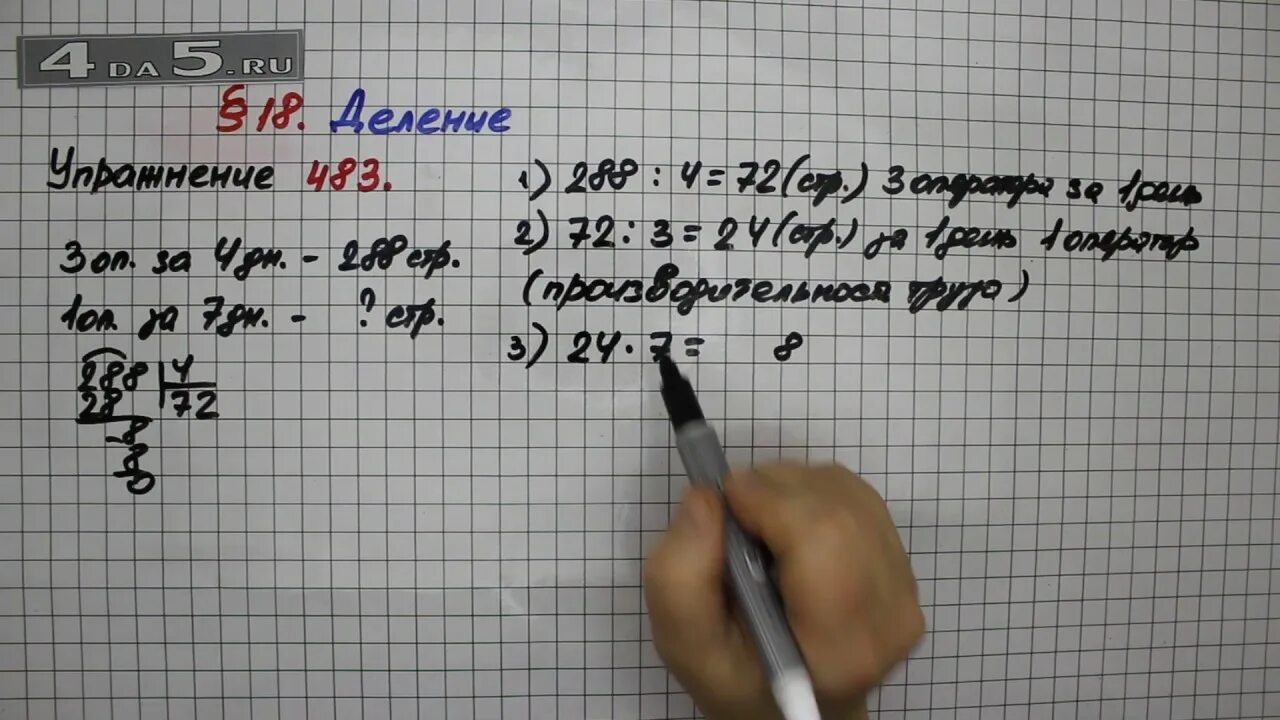 4DA5.RU
§18. Деление
Упражнение 483.
3 оп. за 4 дн. - 288 стр.
1 оп. за 7 дн. - ? стр.
288 4
28 72
-8
8
0
1) 288 : 4 = 72 (стр.) 3 оператора за 1 день
2) 72 : 3 = 24 (стр.) за 1 день 1 оператор
(производительность труда)
3) 24 · 7 = 8